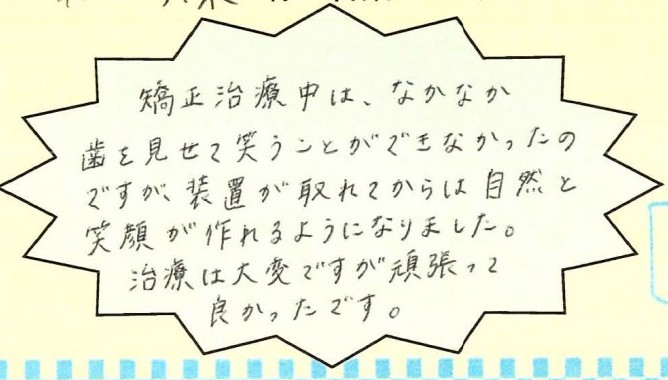 矯正治療中は、なかなか
歯を見せて笑うことができなかったの
ですが、装置が取れてからは自然と
笑顔が作れるようになりました。
治療は大変ですが頑張って
良かったです。